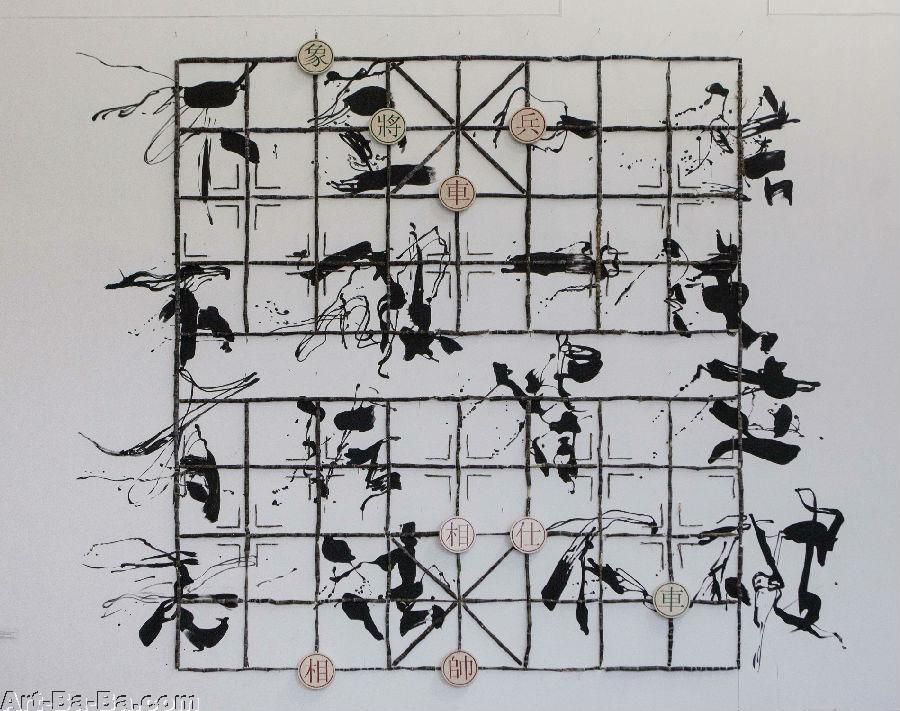 象
將 兵
車
相 仕
車
相 帥
Art-Ba-Ba.com